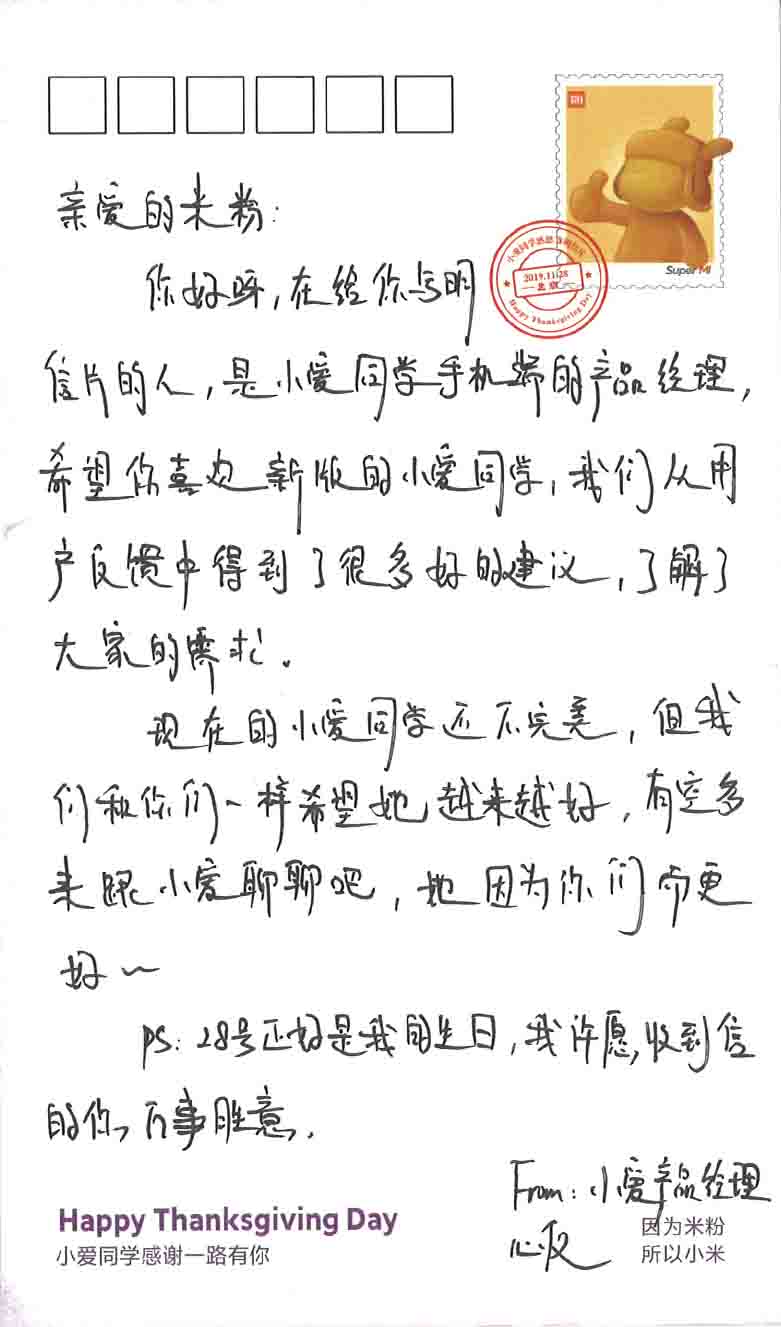 小爱同学感恩节明信片
2019.11.28
北京
Happy Thanksgiving Day
Super MI
亲爱的米粉:
你好呀,在给你写明
信片的人,是小爱同学手机端的产品经理,
希望你喜欢新版的小爱同学,我们从用
户反馈中得到了很多好的建议,了解了
大家的需求.
现在的小爱同学还不完美,但我
们和你们一样希望她越来越好,有空多
来跟小爱聊聊吧,她因为你们而更
好~
PS:28号正好是我的生日,我许愿,收到信
的你,万事胜意.
From:小爱产品经理
Happy Thanksgiving Day
小爱同学感谢一路有你
因为米粉
所以小米